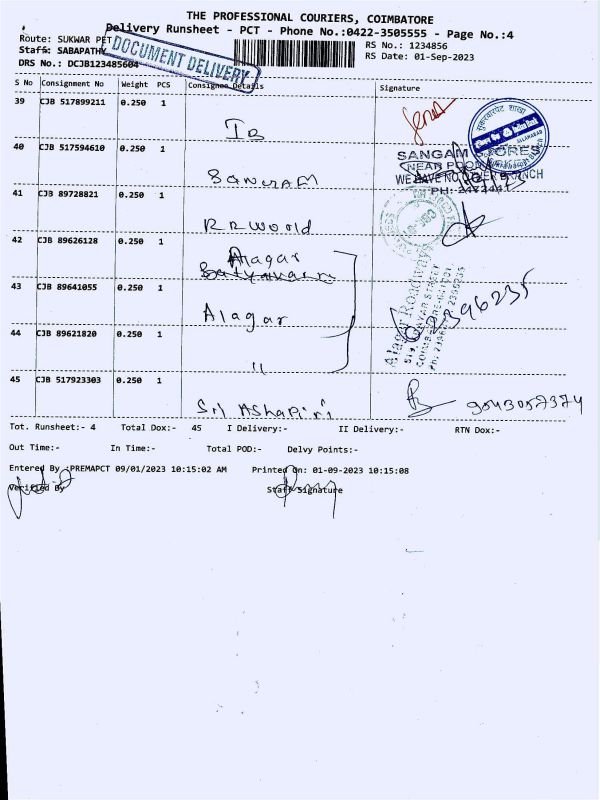 THE PROFESSIONAL COURIERS, COIMBATORE
Delivery Runsheet - PCT - Phone No.:0422-3505555 - Page No.:4
Route: SUKWAR PET
Staff: SABAPATHY
DRS No.: DCJB123485604
DOCUMENT DELIVERY
RS No.: 1234856
RS Date: 01-Sep-2023
S No Consignment No Weight PCS Consignee Details Signature
39 CJB 517899211 0.250 1
IB
40 CJB 517594610 0.250 1
SANGAM STORES
WE HAVE NO OTHER BRANCH
41 CJB 89728821 0.250 1
RR World
42 CJB 89626128 0.250 1
Alagar
43 CJB 89641055 0.250 1
Alagar
Alagar Roadways
2396235
44 CJB 89621820 0.250 1
"
45 CJB 517923303 0.250 1
Tot. Runsheet:- 4 Total Dox:- 45 I Delivery:- II Delivery:- RTN Dox:-
Out Time:- In Time:- Total POD:- Delvy Points:-
Entered By :PREMAPCT 09/01/2023 10:15:02 AM Printed On: 01-09-2023 10:15:08
Verified By Staff Signature